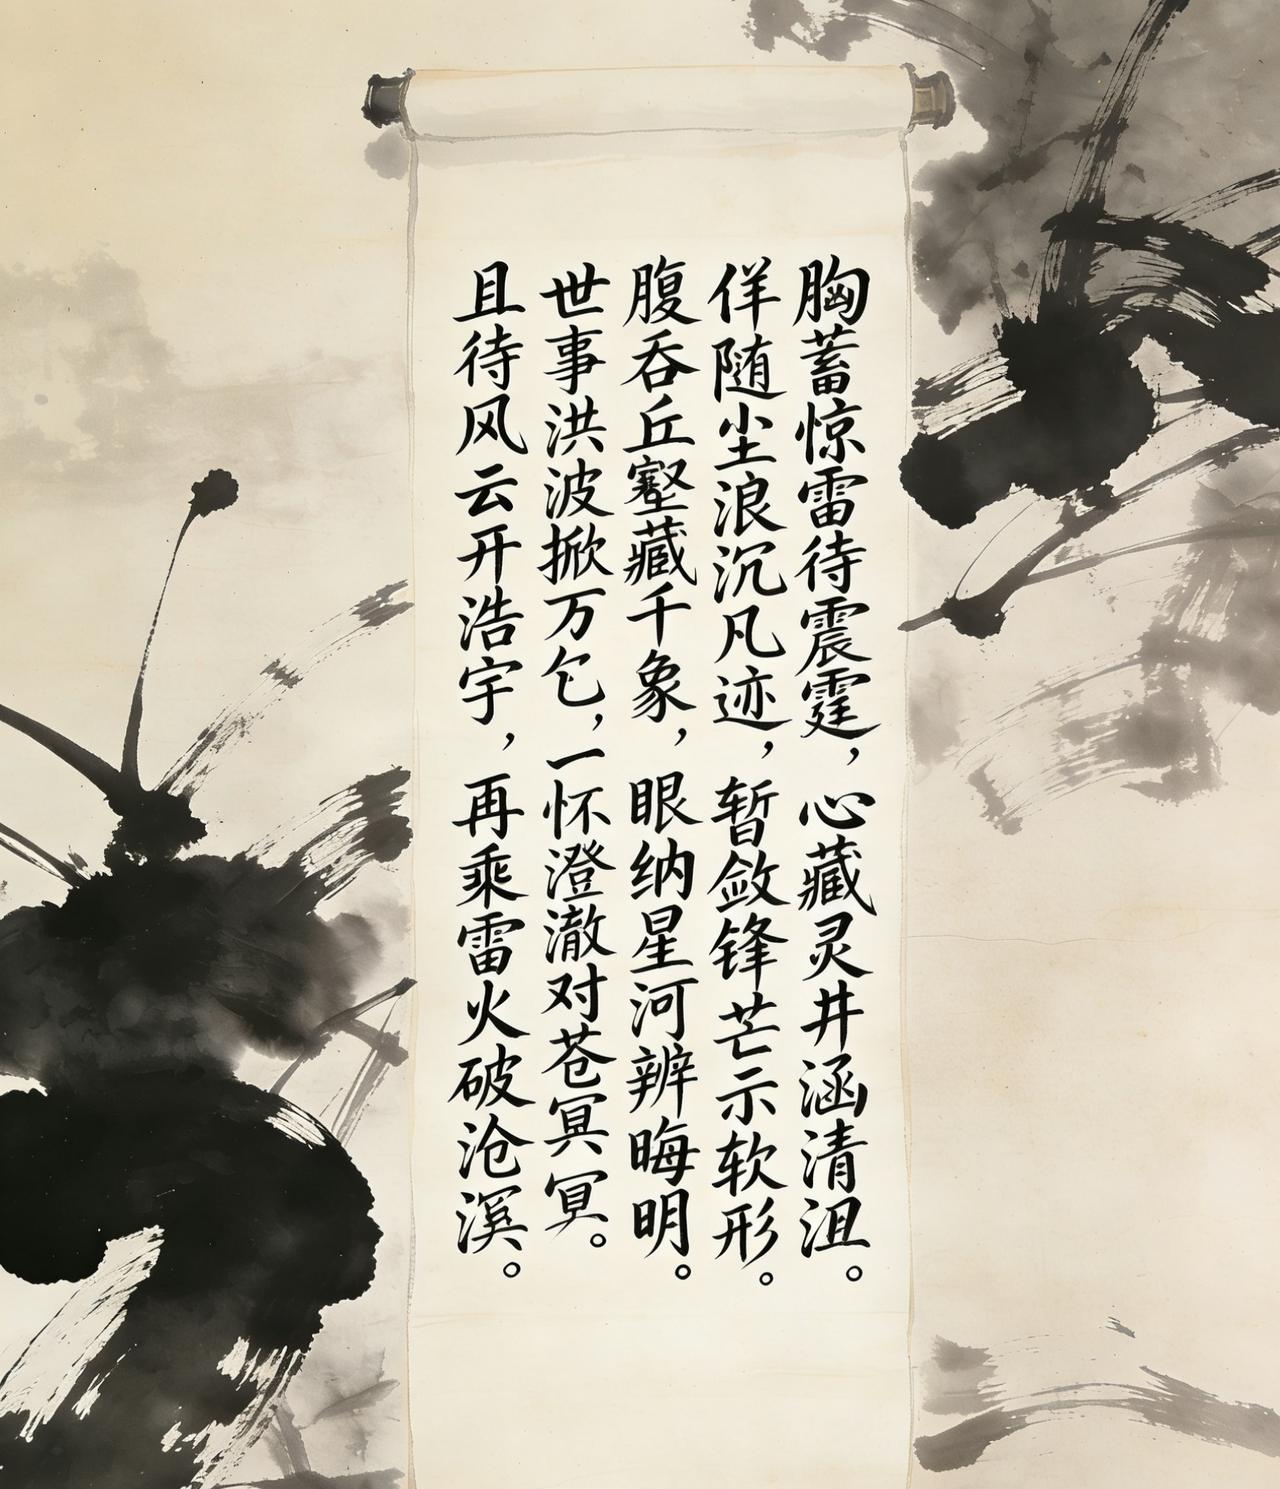 胸蓄惊雷待震霆，心藏灵井涵清沮。
佯随尘浪沉凡迹，暂敛锋芒示软形。
腹吞丘壑藏千象，眼纳星河辨晦明。
世事洪波掀万，一怀澄澈对苍冥冥。
且待风云开浩宇，再乘雷火破沧。